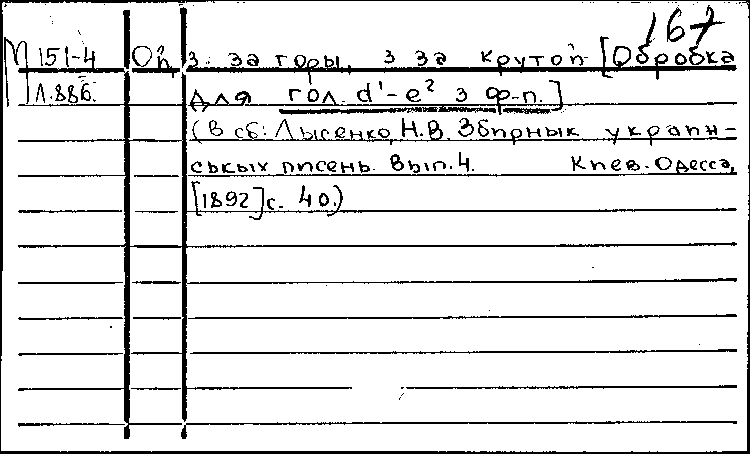 167
М 151-4 Ой, з за горы, з за крутой [Обробка
Л.886. для гол. d'-e² з ф-п.]
(В сб: Лысенко, Н.В. Збирнык украин-
ськых писень. Вып.4. Киев-Одесса,
[1892] с. 40.)